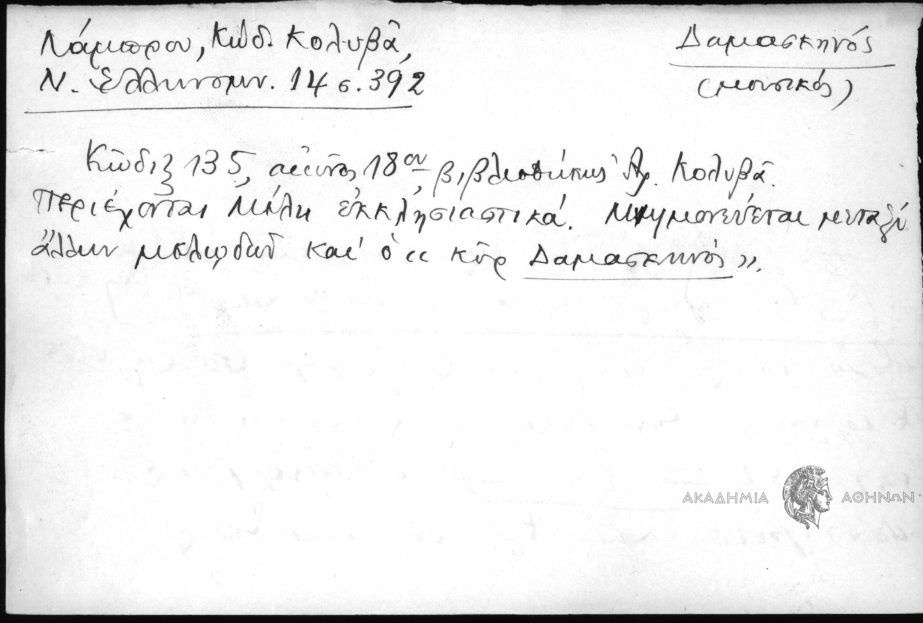 Λάμπρου, Κώδ. Κολυβᾶ,
Ν. Ἑλληνομν. 14 σ. 392
Δαμασκηνός
(μουσικός)
Κῶδιξ 135, αἰῶνος 18ου, βιβλιοθήκης Ἀλ. Κολυβᾶ.
Περιέχονται Μέλη ἐκκλησιαστικά. Μνημονεύεται μεταξὺ
ἄλλων μελῳδῶν καὶ ὁ «κὺρ Δαμασκηνός».
ΑΚΑΔΗΜΙΑ ΑΘΗΝΩΝ